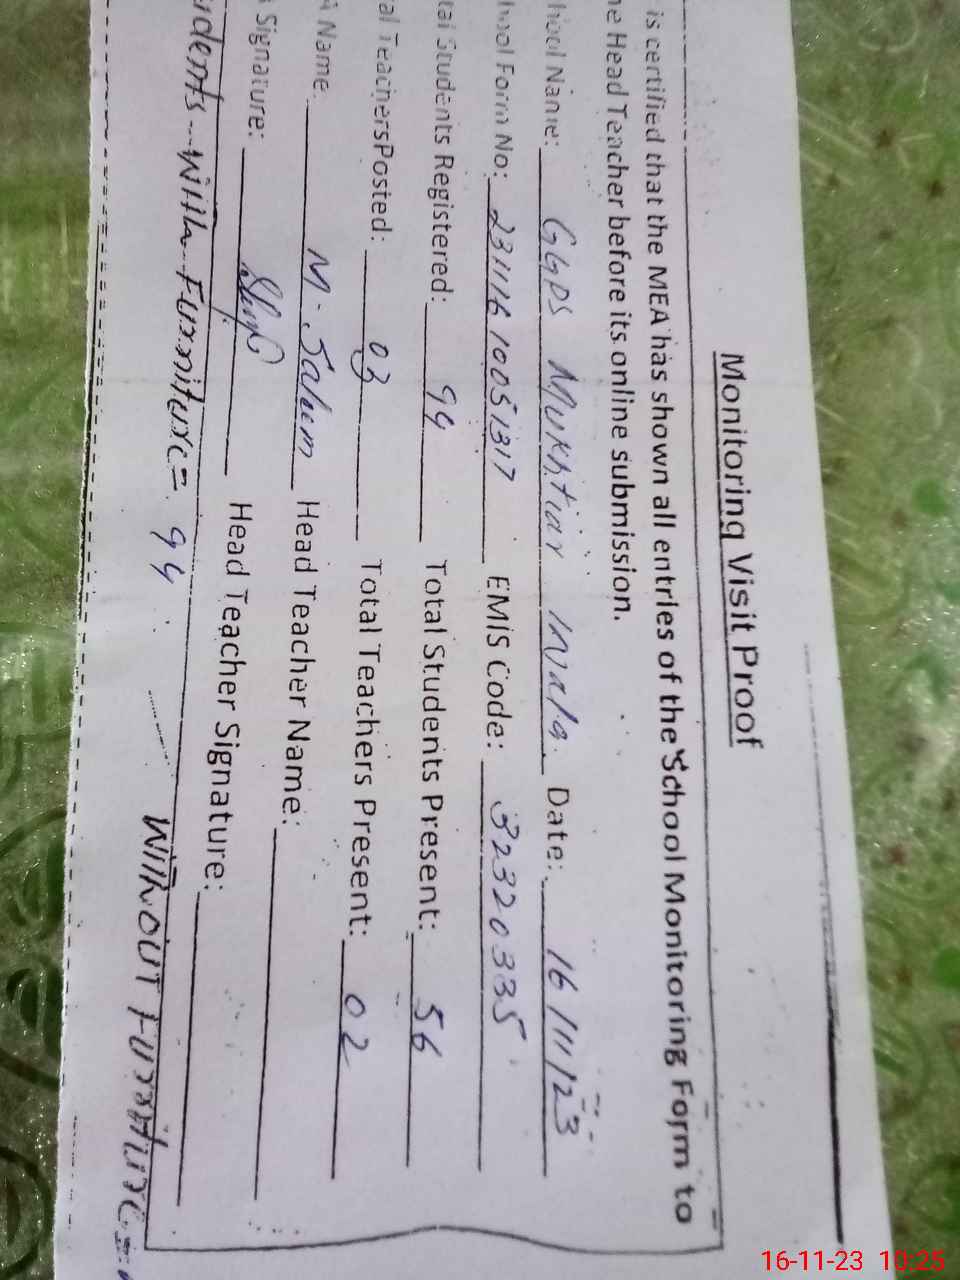 Monitoring Visit Proof
is certified that the MEA has shown all entries of the School Monitoring Form to
he Head Teacher before its online submission.
hool Name: GGPS Mukhtiar Wala Date: 16/11/23
hool Form No: 231116 10051317 EMIS Code: 32320335
tal Students Registered: 94 Total Students Present: 56
al Teachers Posted: 03 Total Teachers Present: 02
A Name: M. Saleem Head Teacher Name:
Signature: Head Teacher Signature:
udents with Furniture = 94 Without Furniture =
16-11-23 10:25